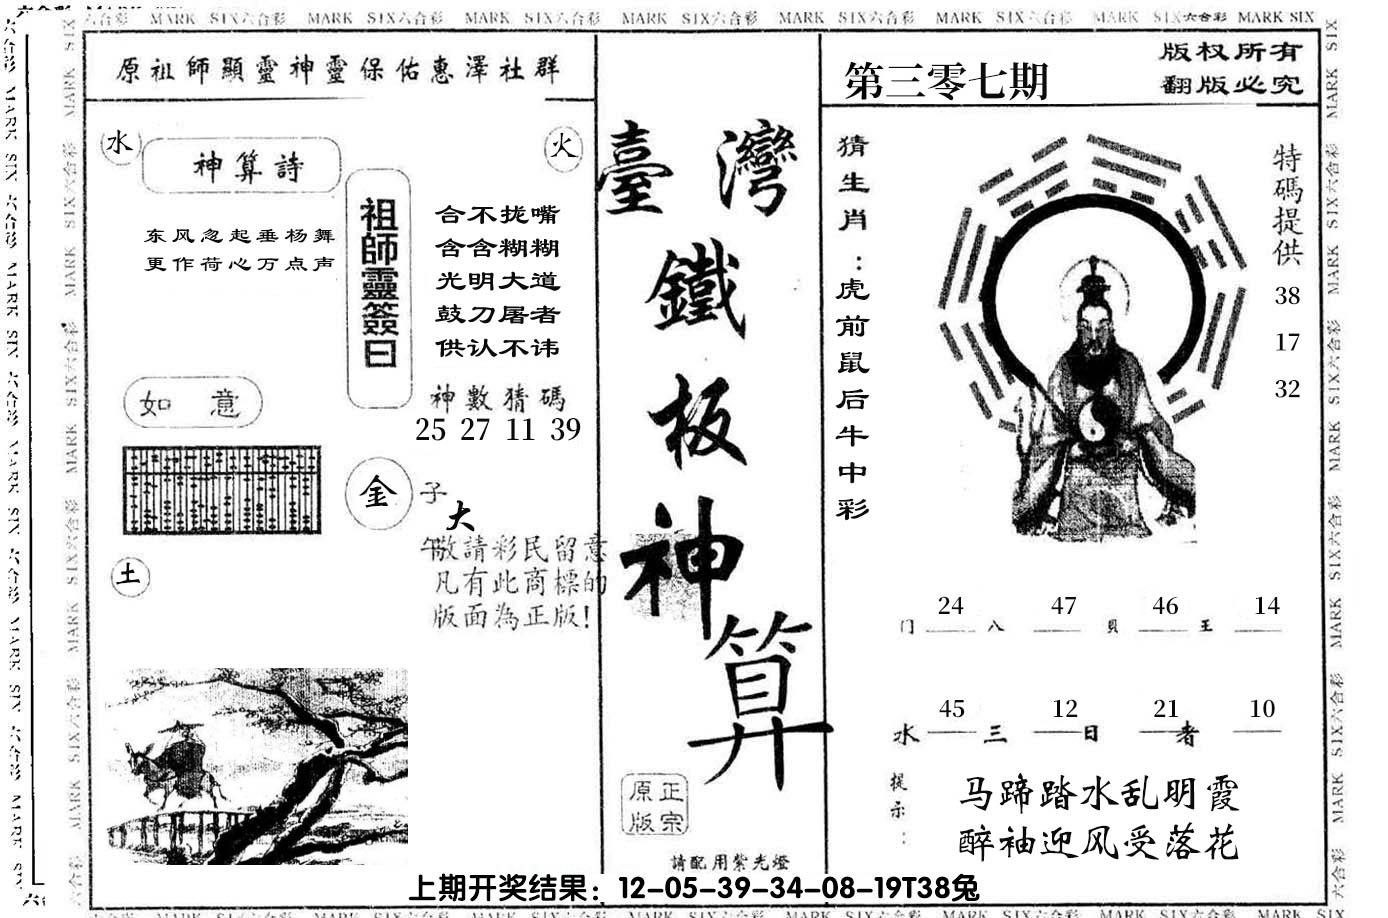 MARK SIX六合彩 MARK SIX六合彩 MARK SIX六合彩 MARK SIX六合彩 MARK SIX六合彩 MARK SIX六合彩 MARK SIX六合彩 MARK SIX
原祖師顯靈神靈保佑惠澤社群
第三零七期
版权所有
翻版必究
水
神算詩
火
东风忽起垂杨舞
更作荷心万点声
祖師靈簽曰
合不拢嘴
含含糊糊
光明大道
鼓刀屠者
供认不讳
神數猜碼
25 27 11 39
如 意
金
子
大
午
敬請彩民留意
凡有此商標的
版面為正版!
土
臺灣
鐵
板
神
算
正宗
原版
請配用紫光燈
猜生肖：虎前鼠后牛中彩
特碼提供
38
17
32
24 47 46 14
门 八 貝 王
45 12 21 10
水 三 日 者
提示：
马蹄踏水乱明霞
醉袖迎风受落花
上期开奖结果：12-05-39-34-08-19T38兔